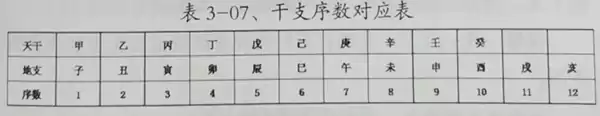 表 3-07、干支序数对应表
天干 甲 乙 丙 丁 戊 己 庚 辛 壬 癸
地支 子 丑 寅 卯 辰 巳 午 未 申 酉 戌 亥
序数 1 2 3 4 5 6 7 8 9 10 11 12